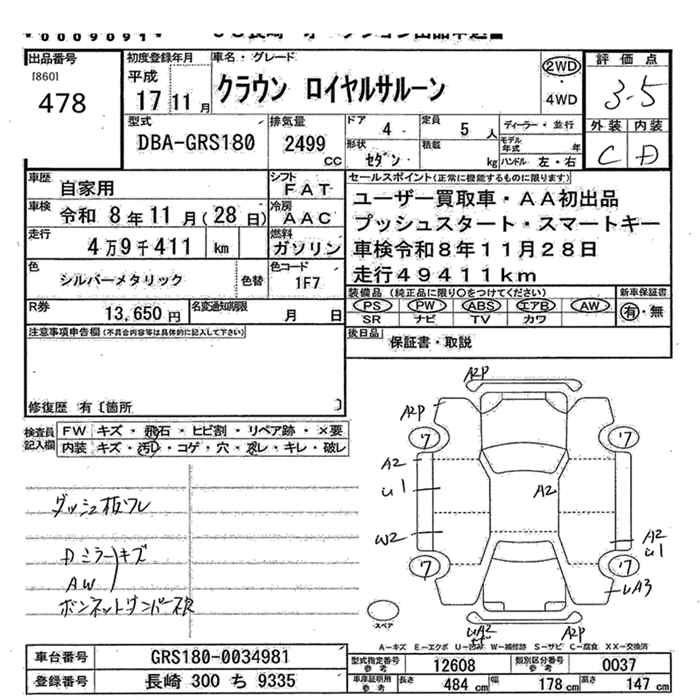 出品番号
[860]
478
初度登録年月
平成
17 11 月
車名・グレード
クラウン ロイヤルサルーン
2WD
・
4WD
評価点
3.5
外装 内装
C D
型式
DBA-GRS180
排気量
2499
CC
ドア
4
定員
5 人
ディーラー・並行
形状
セダン
積載
kg
モデル年式
年
ハンドル 左・右
車歴
自家用
シフト
FAT
車検
令和 8 年 11 月(28 日)
冷房
AAC
走行
4 万 9 千 411 km
燃料
ガソリン
色
シルバーメタリック
色替
色コード
1F7
R券
13,650 円
名変通知期限
月 日
セールスポイント(正常に機能するものに限ります)
ユーザー買取車・AA初出品
プッシュスタート・スマートキー
車検令和8年11月28日
走行49411km
装備品(純正品に限り○をつけてください)
新車保証書
PS PW ABS エアB AW
有・無
SR ナビ TV カワ
後日品
保証書・取説
注意事項申告欄(不具合内容等は具体的に記入して下さい)
修復歴 有〔箇所 〕
検査員
記入欄
FW キズ・飛石・ヒビ割・リペア跡・×要
内装 キズ・汚れ・コゲ・穴・スレ・キレ・破レ
ダッシュ板ワレ
Dミラー キズ
AW
A2P
A2P
7
7
A2
U1
A2
W2
A2
U1
7
7
A2P
スペア
A−キズ E−エクボ U−凹み W−補修跡 S−サビ C−腐食 XX−交換済
車台番号
GRS180-0034981
登録番号
長崎 300 ち 9335
型式指定番号
参考
12608
類別区分番号
参考
0037
車庫証明用
参考
長さ
484 cm
幅
178 cm
高さ
147 cm